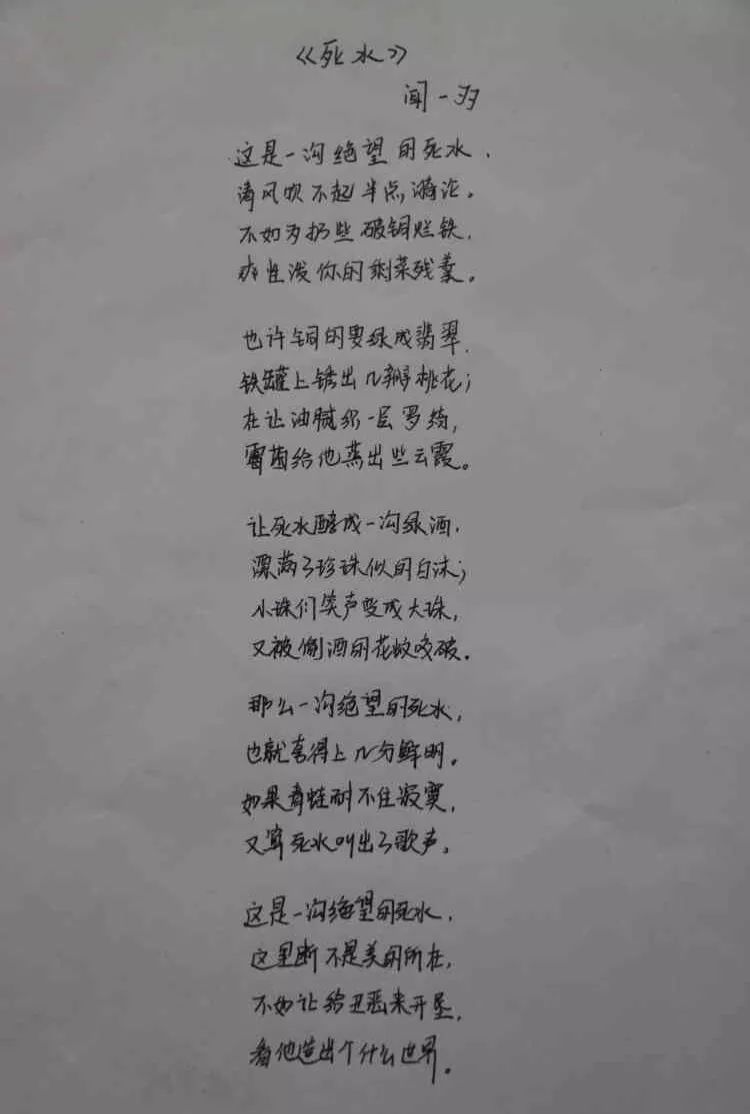 《死水》
闻一多
这是一沟绝望的死水,
清风吹不起半点漪沦。
不如多扔些破铜烂铁,
爽性泼你的剩菜残羹。
也许铜的要绿成翡翠,
铁罐上锈出几瓣桃花;
在让油腻织一层罗绮,
霉菌给他蒸出些云霞。
让死水酵成一沟绿酒,
漂满了珍珠似的白沫;
小珠们笑声变成大珠,
又被偷酒的花蚊咬破。
那么一沟绝望的死水,
也就夸得上几分鲜明。
如果青蛙耐不住寂寞,
又算死水叫出了歌声。
这是一沟绝望的死水,
这里断不是美的所在,
不如让给丑恶来开垦,
看他造出个什么世界。